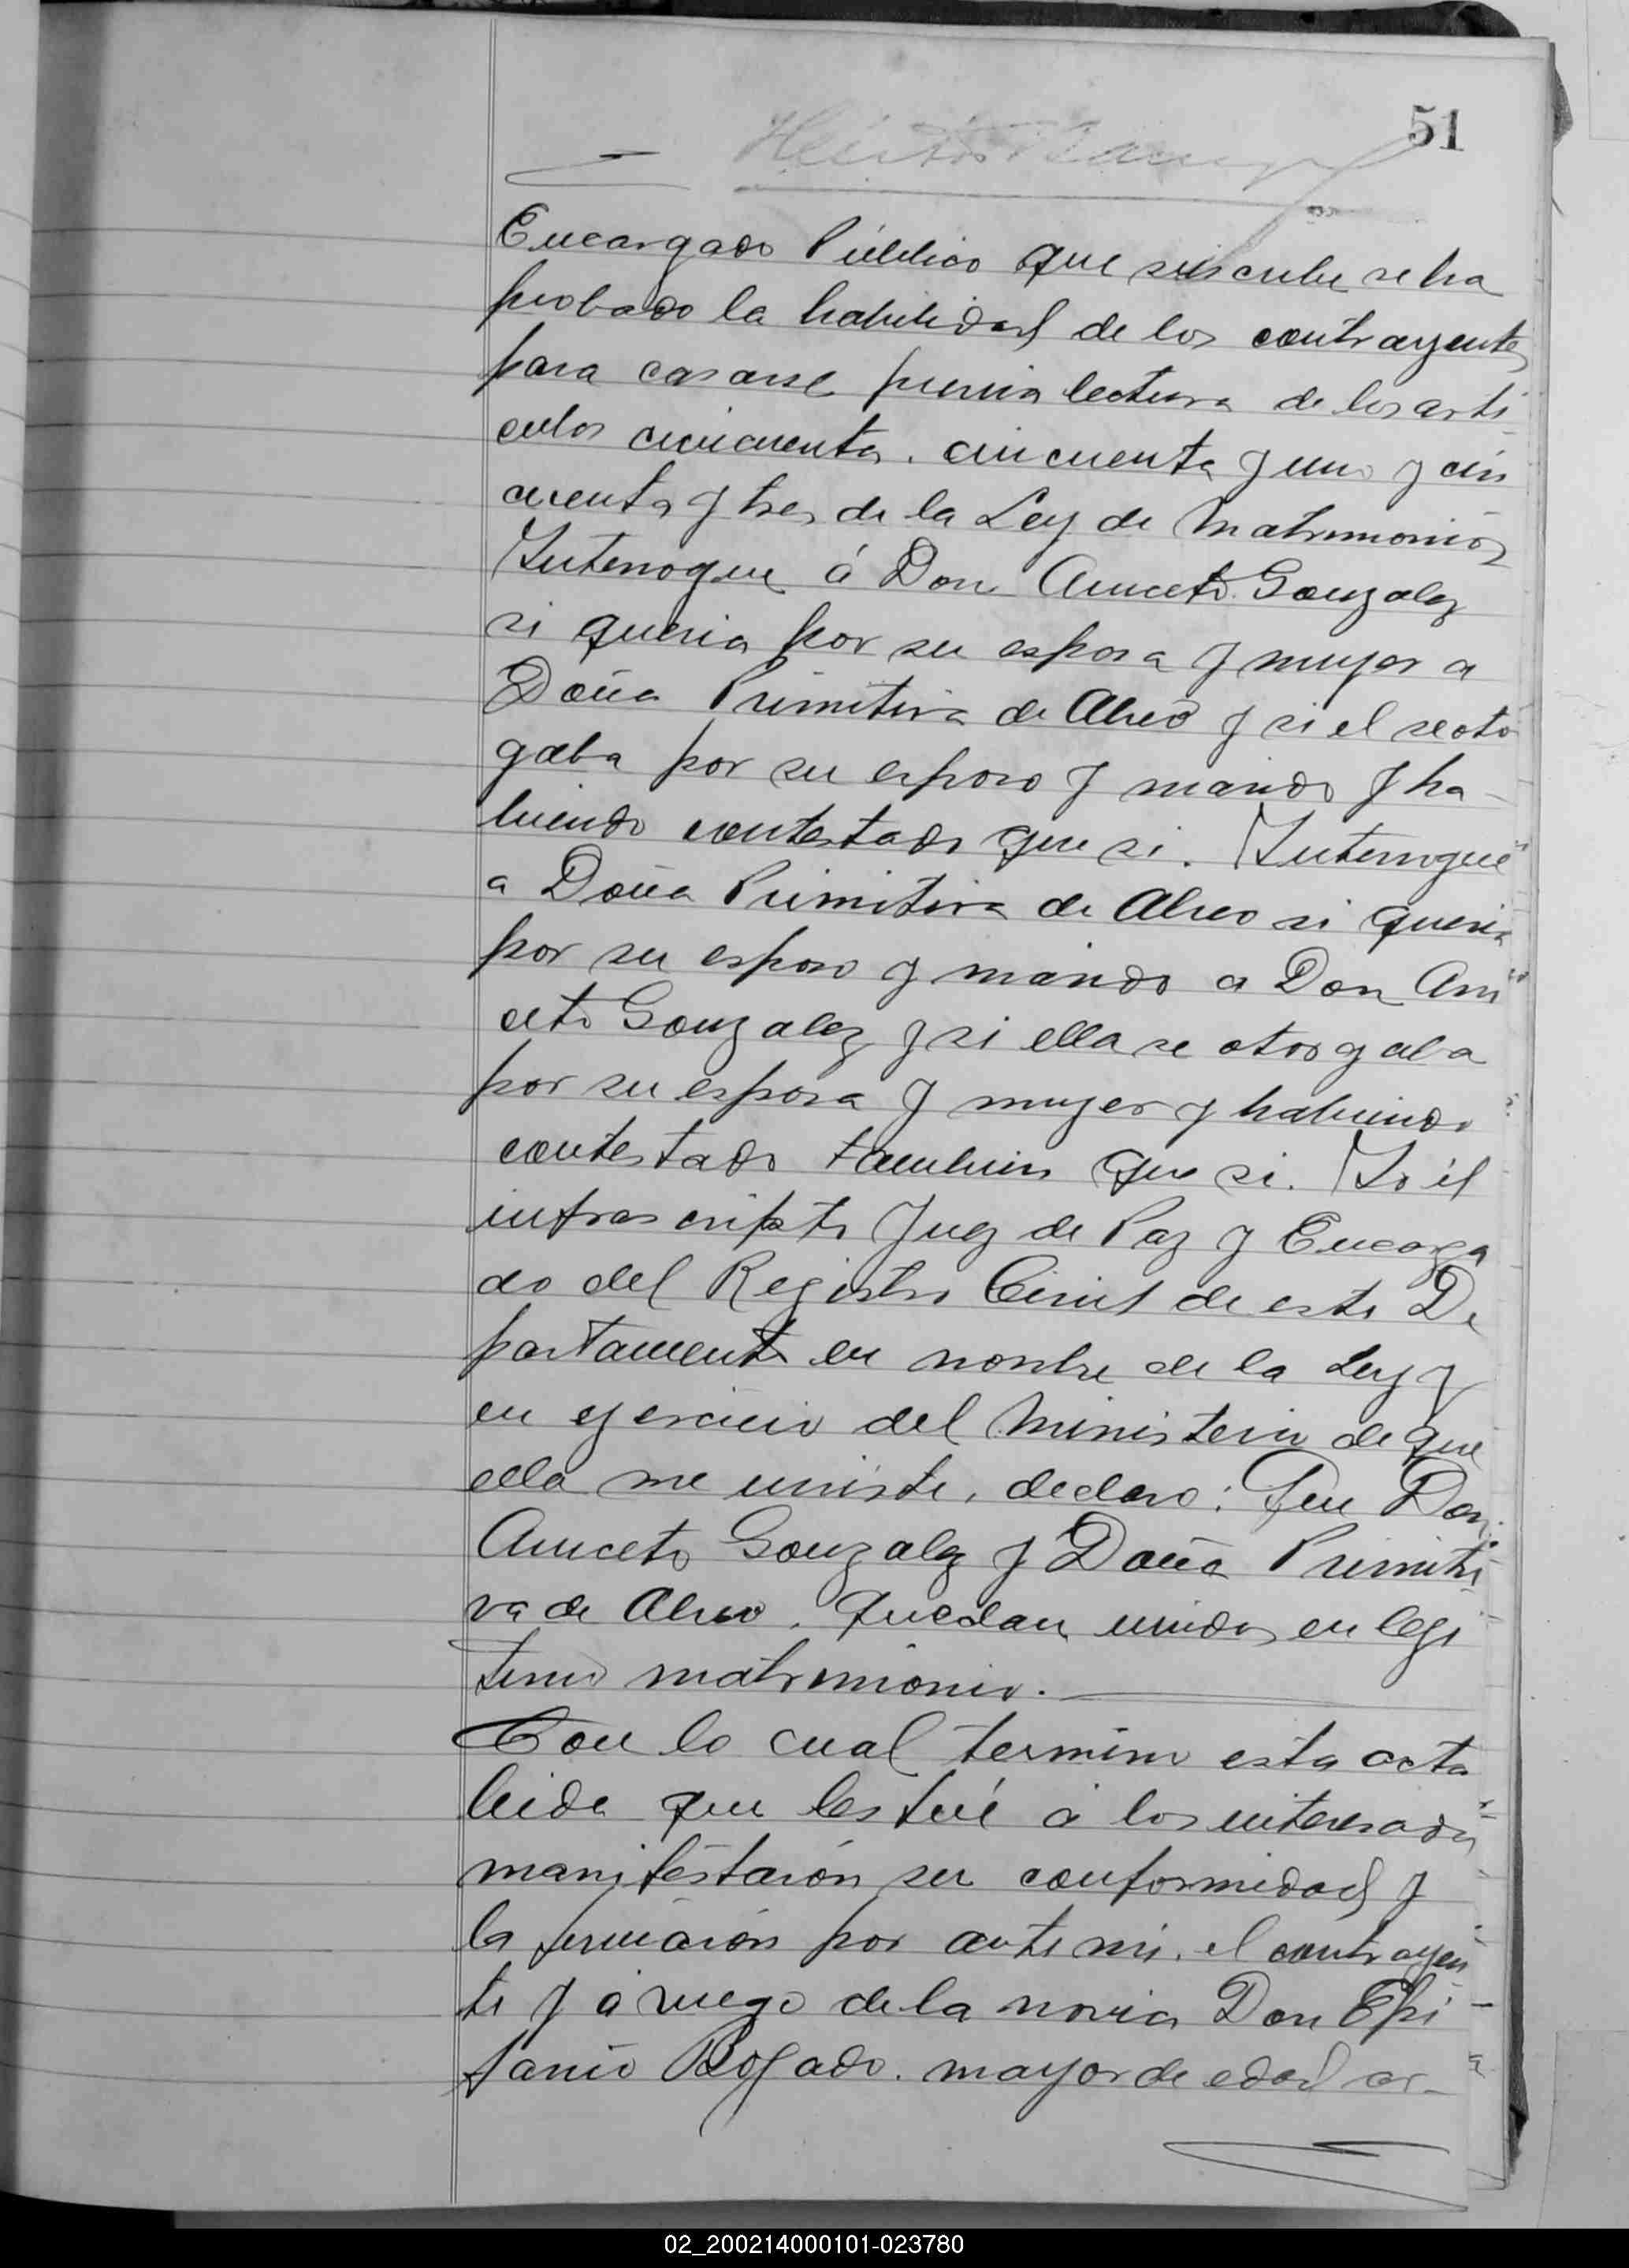 51
Encargado Público que suscribe se ha
probado la habilidad de los contrayentes
para casarse previa lectura de los arti
culos cincuenta. cincuenta y uno y cin
cuenta y tres de la Ley de Matrimonios
Interrogue á Don Aniceto Gonzalez
si queria por su esposa y mujer a
Doña Primitiva de Alveo y si el se otor
gaba por su esposo y marido y ha-
biendo contestado que si. Interrogué
a Doña Primitiva de Alveo si queria
por su esposo y marido a Don Ani
ceto Gonzalez y si ella se otorgaba
por su esposa y mujer y habiendo
contestado tambien que si. Yo él
infrascripto Juez de Paz y Encarga
do del Registro Civil de este De
partamento en nombre de la Ley y
en ejercicio del Ministerio de que
ella me uniste, declaro: Que Don
Aniceto Gonzalez y Doña Primiti
va de Alveo. quedan unidos en legi
timo matrimonio.
Con lo cual termino esta acta
leida que les fué á los interesados
manifestarón su conformidad y
la firmarón por ante mi. el contrayen
te y á ruego de la novia Don Epi
fanio Bogado. mayor de edad ar-
02_200214000101-023780